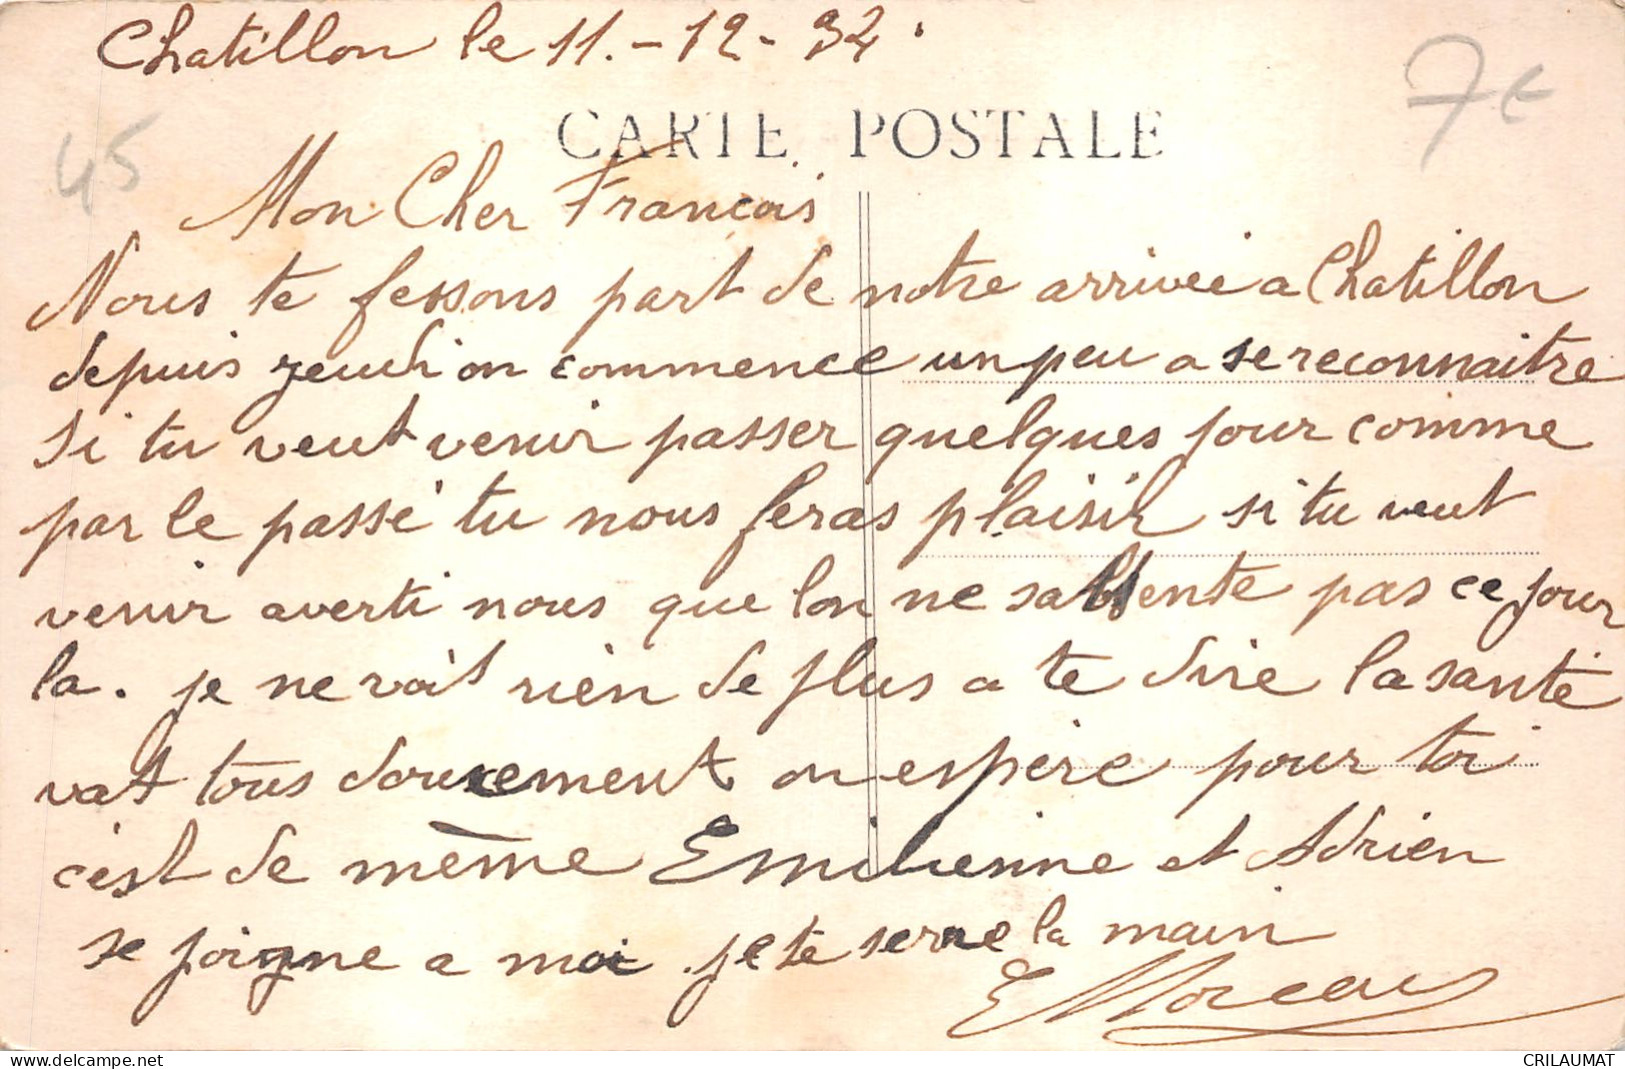 Chatillon le 11.-12-32.
45
7€
CARTE POSTALE
Mon Cher François
Nous te fessons part de notre arrivée a Chatillon
depuis jeudi on commence un peu a se reconnaitre
Si tu veut venir passer quelques jour comme
par le passé tu nous feras plaisir si tu veut
venir averti nous que lon ne sabsente pas ce jour
la. je ne voit rien de plus a te dire la santé
vat tous doucement on espère pour toi
c'est de même Emilienne et Adrien
se joigne a moi je te serre la main
E Moreau
CRILAUMAT
delcampe.net